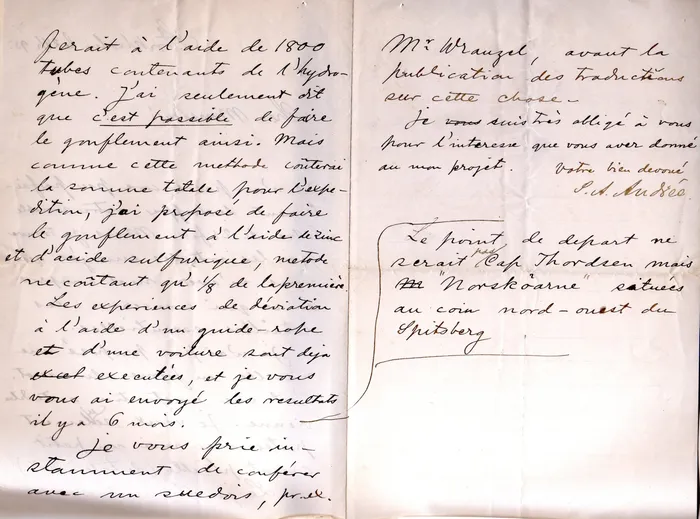 ferait à l'aide de 1800
tubes contenants de l'hydro-
gène. J'ai seulement dit
que c'est possible de faire
le gonflement ainsi. Mais
comme cette methode coûterai
la somme totale pour l'expe-
dition, j'ai proposé de faire
le gonflement à l'aide de zinc
et d'acide sulfurique, metode
ne coûtant qu' 1/8 de la première.
Les experiences de déviation
à l'aide d'un guide-rope
et d'une voiture sont deja
executées, et je vous
vous ai envoyé les resultats
il y a 6 mois.
Je vous prie in-
stamment de conférer
avec un suedois, pr. ex.
Mr Wrangel, avant la
publication des traductions
sur cette chose.
Je vous suis très obligé à vous
pour l'interesse que vous avez donné
au mon projet. Votre bien devoué
S. A. Andrée.
Le point de depart ne
serait pas Cap Thordsen mais
"Norsköarne" situées
au coin nord-ouest du
Spitsberg